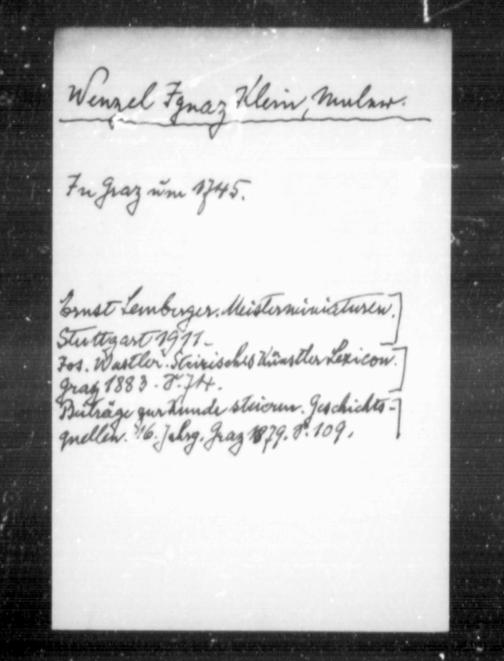 Wenzel Ignaz Klein, Maler.
In Graz um 1745.
Ernst Lemberger. Meisterminiaturen.
Stuttgart 1911.
Jos. Wastler. Steirisches Künstler Lexicon.
Graz 1883. S. 74.
Beiträge zur Kunde steierm. Geschichts-
quellen. 16. Jahrg. Graz 1879. S. 109.